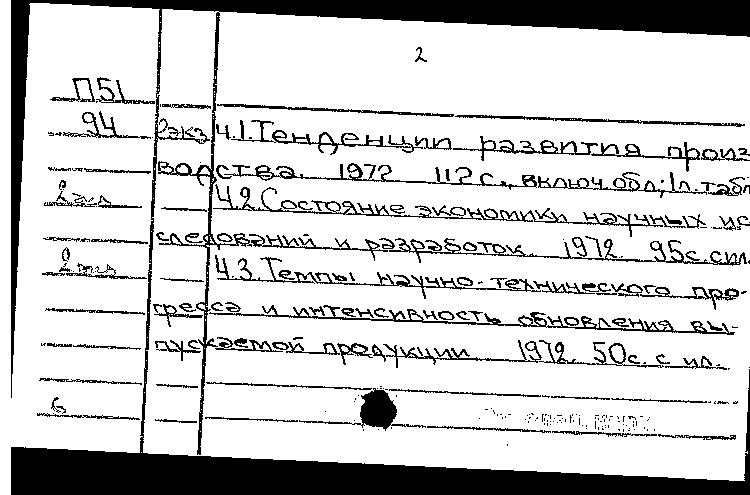 2
П51
94 2экз Ч.1. Тенденции развития произ
водства. 1972 112с., включ. обл; 1л. табл
2 экз Ч.2. Состояние экономики научных ис
следований и разработок. 1972. 95с. с ил.
2 экз Ч.3. Темпы научно-технического про-
гресса и интенсивность обновления вы-
пускаемой продукции 1972. 50с. с ил.
6